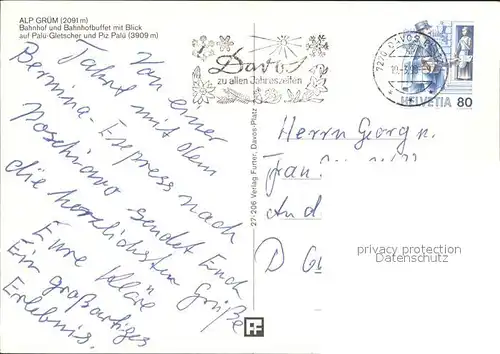 ALP GRÜM (2091 m)
Bahnhof und Bahnhofbuffet mit Blick
auf Palü-Gletscher und Piz Palü (3909 m)
Von einer
Fahrt mit dem
Bernina-Express nach
Poschiavo sendet Euch
die herzlichsten Grüße
Eure Kläre
Ein großartiges
Erlebnis.
27-206 Verlag Furter, Davos-Platz
Davos
zu allen Jahreszeiten
7270 DAVOS
HELVETIA 80
Herrn Georg u.
Frau
D
privacy protection
Datenschutz